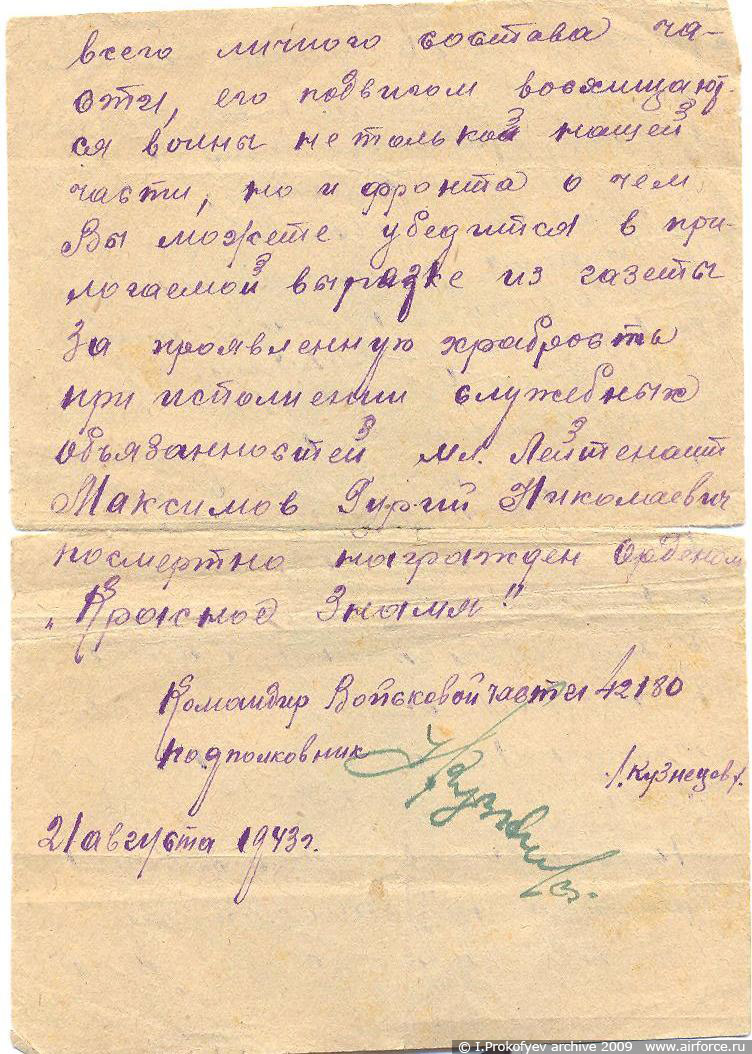 всего личного состава ча-
сти, его подвигом восхищают-
ся воины не только нашей
части, но и фронта о чем
Вы можете убедится в при-
логаемой вырязке из газеты
За проявленную храбрость
при исполнении служебных
объязанностей мл. Лейтенант
Максимов Гурий Николаевич
посмертно награжден Орденом
„Красное Знамя"
Командир Войсковой части 42180
подполковник
/.Кузнецов/.
21 августа 1943г.
© I.Prokofyev archive 2009 www.airforce.ru